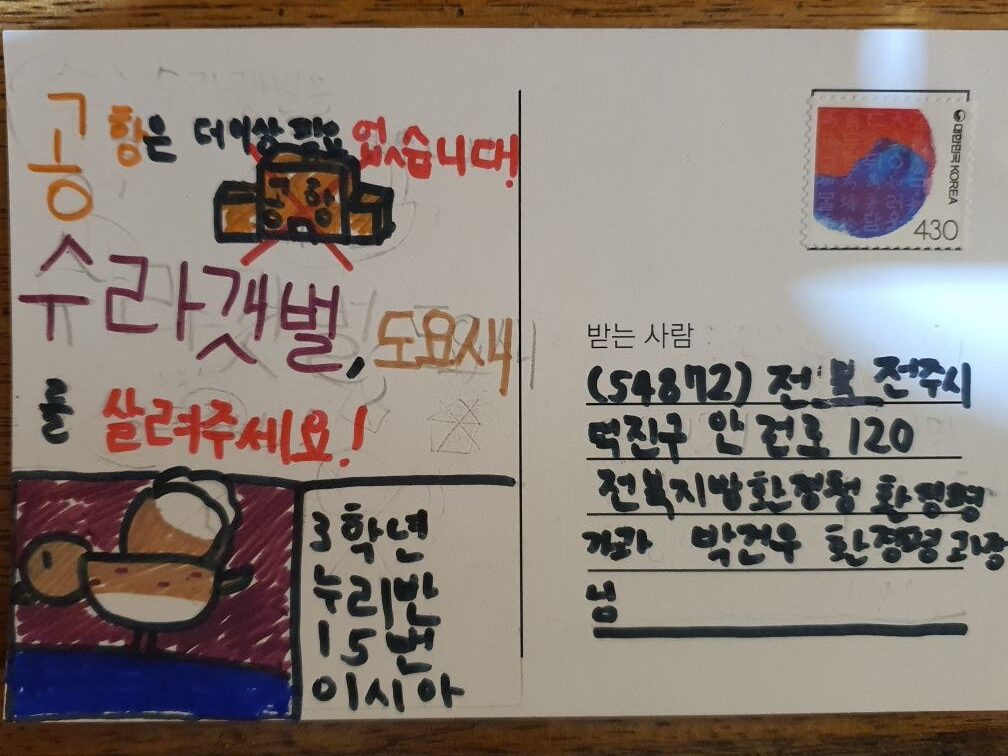 공항은 더이상 필요 없습니다!
공항
수라갯벌, 도요새
를 살려주세요!
3학년
누리반
15번
이시아
대한민국 KOREA
430
받는 사람
(54872) 전북 전주시
덕진구 안전로 120
전북지방환경청 환경평
가과 박건우 환경평과장
님